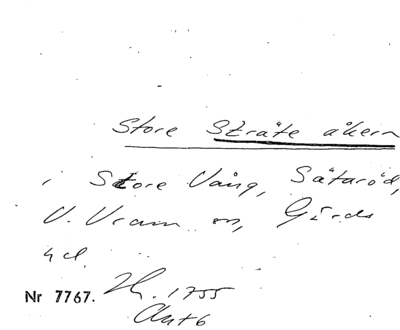 Store Sträte åkern
i Store Vång, Sätaröd,
V. Vram sn, Gärds
hd.
Nr 7767. 1755
Akt 6